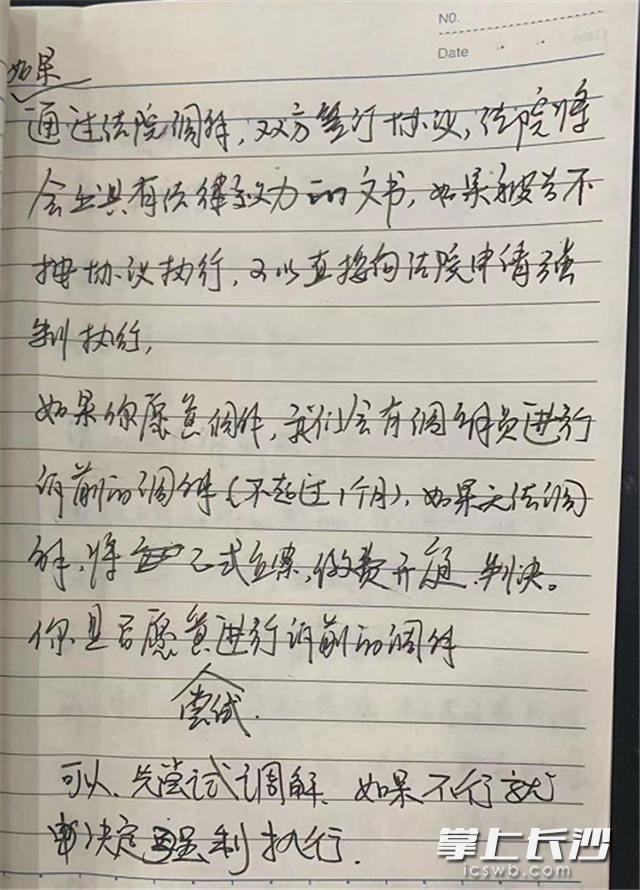 NO.
Date
如果
通过法院调解,双方签订协议,法院将
会出具有法律效力的文书,如果被告不
按协议执行,可以直接向法院申请强
制执行,
如果你愿意调解,我们会有调解员进行
诉前的调解(不超过1个月),如果无法调
解,将正式立案,缴费开庭、判决。
你是否愿意进行诉前的调解
尝试.
可以、先尝试调解、如果不行就
决定强制执行.
掌上长沙
icswb.com